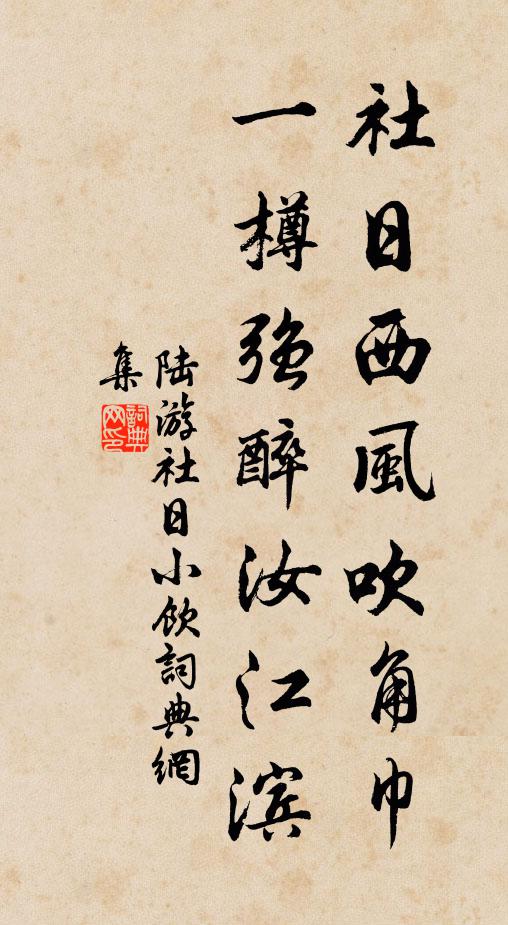 社日西風吹角巾
一樽強醉汝江滨
陆游社日小飲詞典網
集
詞典
网印